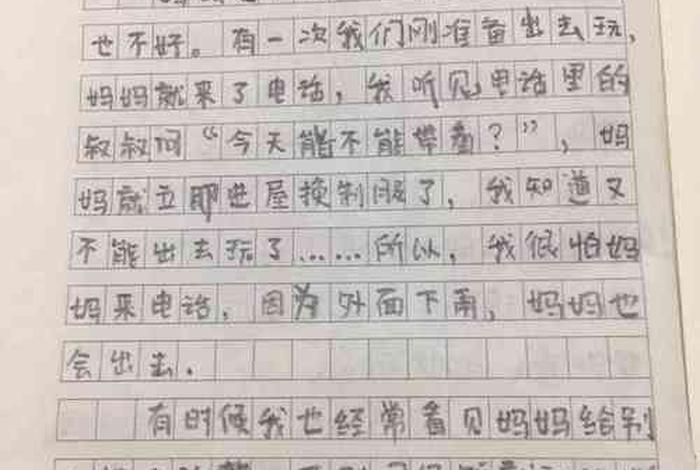 也不好。有一次我们刚准备出去玩，
妈妈就来了电话，我听见电话里的
叔叔问“今天能不能带看？”，妈
妈就立即进屋换制服了，我知道又
不能出去玩了……所以，我很怕妈
妈来电话，因为外面下雨，妈妈也
会出去。
有时候我也经常看见妈妈给别